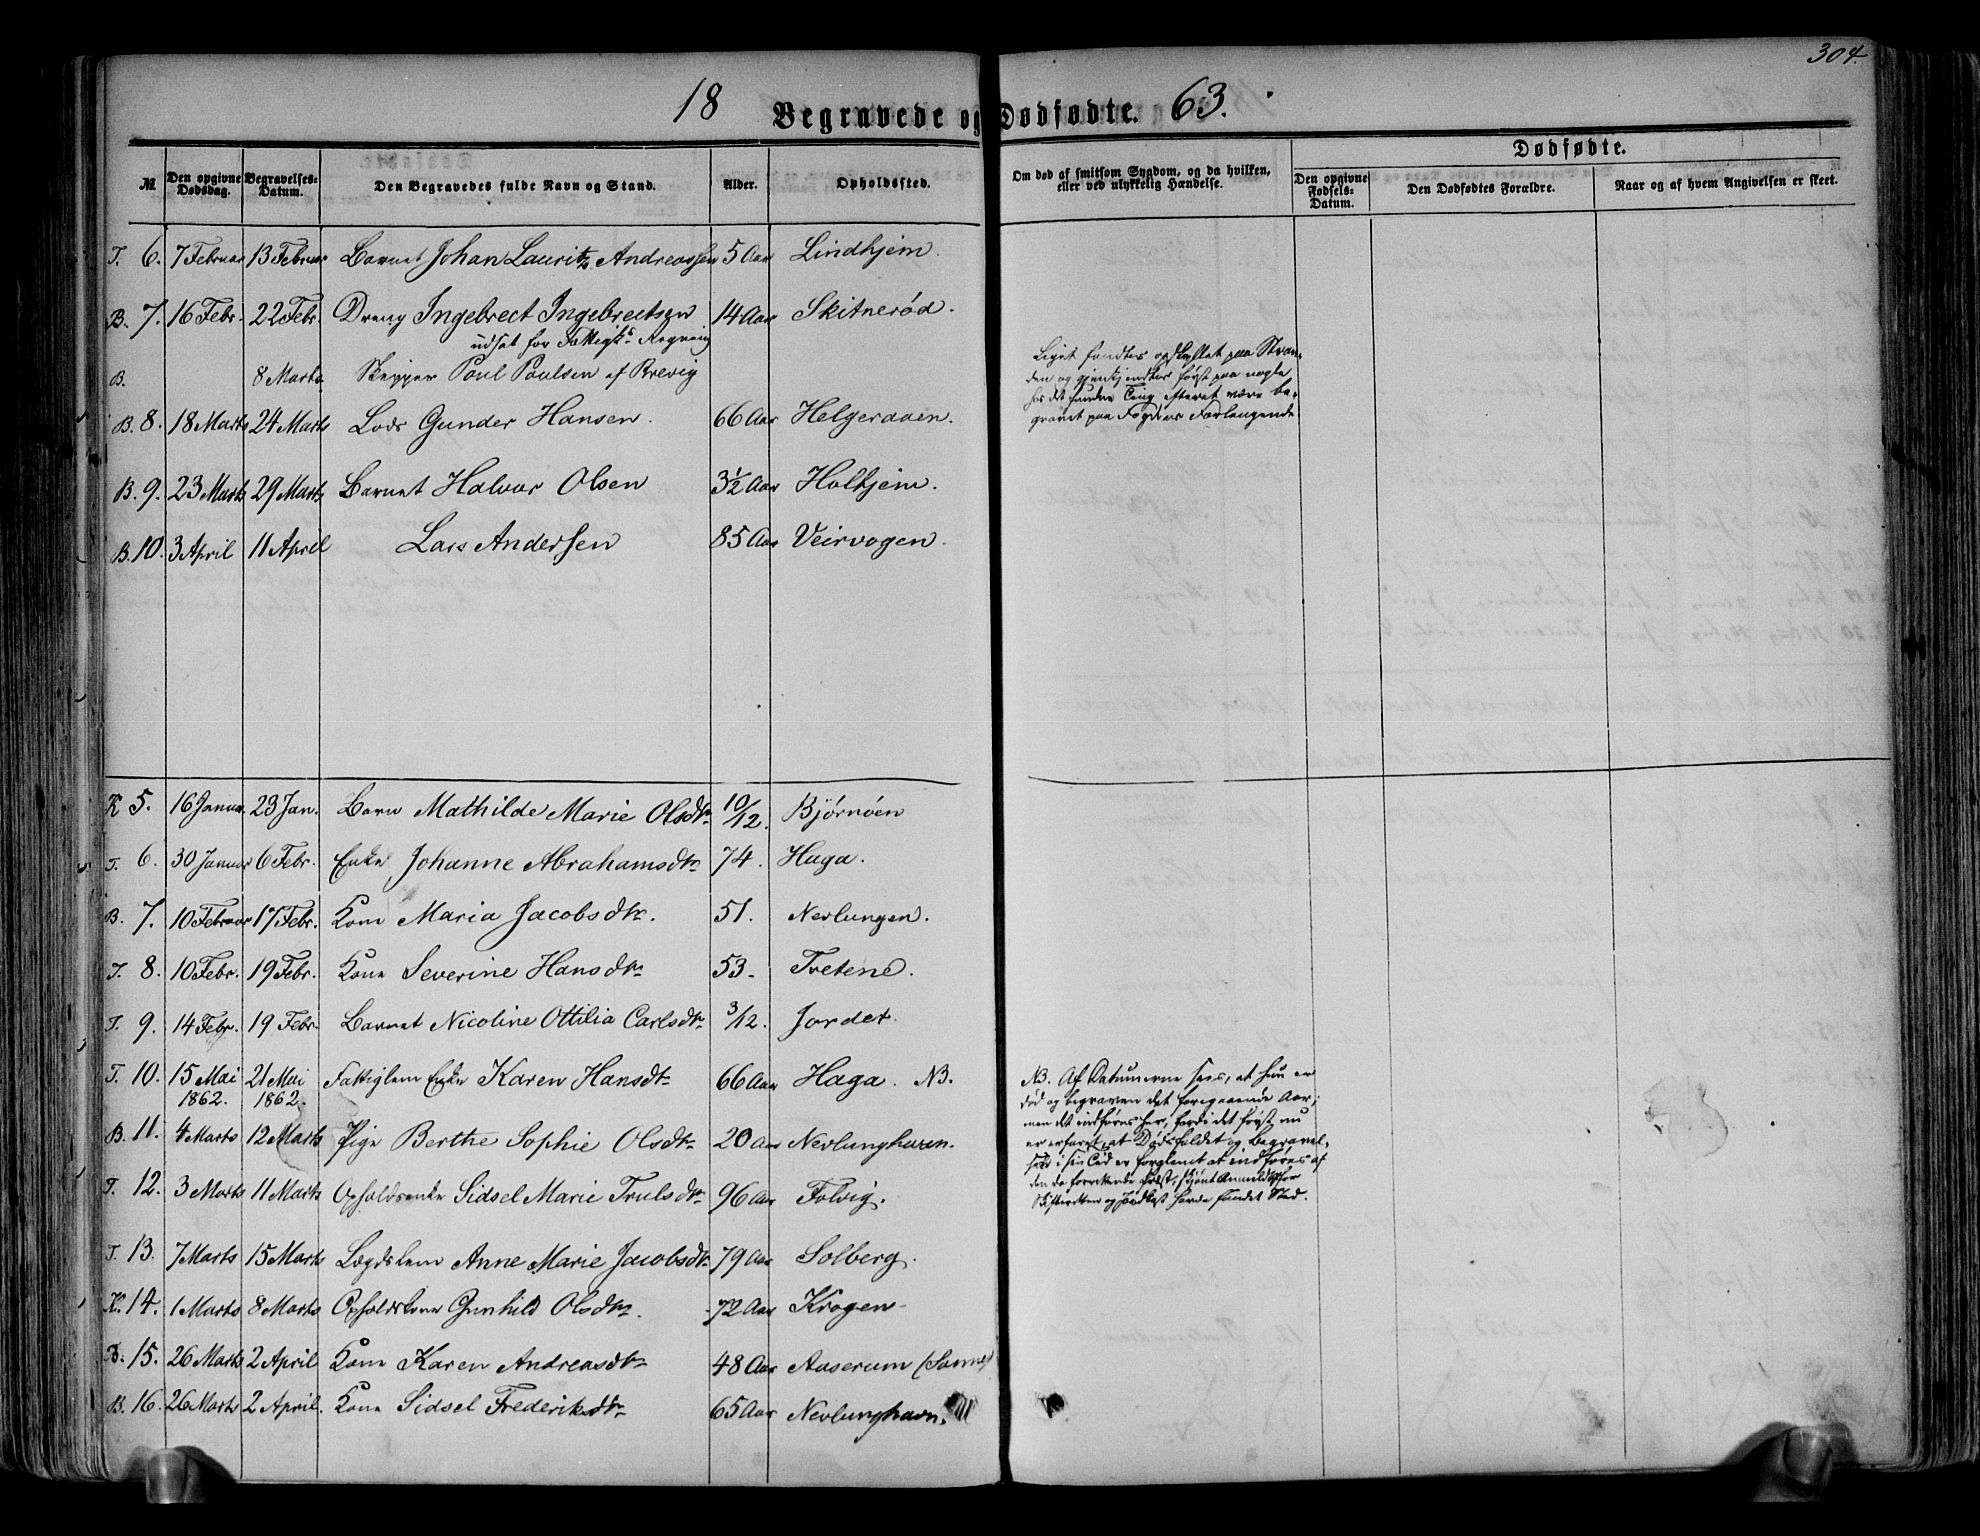 304.
18 Begravede og Dødfødte. 63.
№ Den opgivne Dødsdag. Begravelses-Datum. Den Begravedes fulde Navn og Stand. Alder. Opholdssted. Om død af smitsom Sygdom, og da hvilken, eller ved ulykkelig Hændelse. Dødfødte. Den opgivne Fødsels-Datum. Den Dødfødtes Forældre. Naar og af hvem Angivelsen er skeet.
T. 6. 7 Februar 13 Februar Barnet Johan Lauritz Andreassen 5 Aar Lindhjem.
B. 7. 16 Febr. 22 Febr. Dreng Ingebrect Ingebrectsen 14 Aar Skitnerød.
udsat for Fattigk. Regning
B. 8 Marts Skipper Poul Poulsen af Brevig
B. 8. 18 Marts 24 Marts Lods Gunder Hansen. 66 Aar Helgeraaen.
B. 9. 23 Marts 29 Marts Barnet Halvor Olsen 3½ Aar Holtjem.
B. 10. 3 April 11 April Lars Andersen 85 Aar Veirvogen.
Liget fandtes opskyllet paa Stran-
den og gjenkjendtes først paa nogle
hos det fundne Ting efterat være be-
gravet paa Fogdens Forlangende
K 5. 16 Januar. 23 Jan. Barn Mathilde Marie Olsdtr 10/12. Bjørnøen
T. 6. 30 Januar 6 Febr. Enke Johanne Abrahamsdtr 74. Haga.
B. 7. 10 Februar 17 Febr. Kone Maria Jacobsdtr. 51. Nevlungen.
T. 8. 10 Febr. 19 Febr. Kone Severine Hansdtr 53. Tretene.
T. 9. 14 Febr. 19 Febr. Barnet Nicoline Ottilia Carlsdtr 3/12. Jordet.
T. 10. 15 Mai 1862. 21 Mai 1862. Fattiglem Enke Karen Hansdtr 66 Aar Haga. NB.
B. 11. 4 Marts 12 Marts Pige Berthe Sophie Olsdtr 20 Aar Nevlunghaven.
T. 12. 3 Marts 11 Marts Opholdsenke Sidsel Marie Trulsdtr 96 Aar Folvig.
T. 13. 7 Marts 15 Marts Lægdslem Anne Marie Jacobsdtr 79 Aar Solberg.
K. 14. 1 Marts 8 Marts Opholdskone Gunhild Olsdtr. 72 Aar Krogen
B. 15. 26 Marts 2 April Kone Karen Andreasdtr 48 Aar Aaserum
B. 16. 26 Marts 2 April. Kone Sidsel Frederiksdtr 65 Aar Nevlunghavn.
NB. Af Datumerne sees, at hun er
død og begraven det foregaaende Aar;
men det indføres her, fordi det først nu
er erfaret, at Dødsfaldet og Begravel-
sen i sin Tid er forglemt at indføres af
den da Præst, skjønt Anmeldelse for
Skifteretten og Jordkast havde fundet Sted.